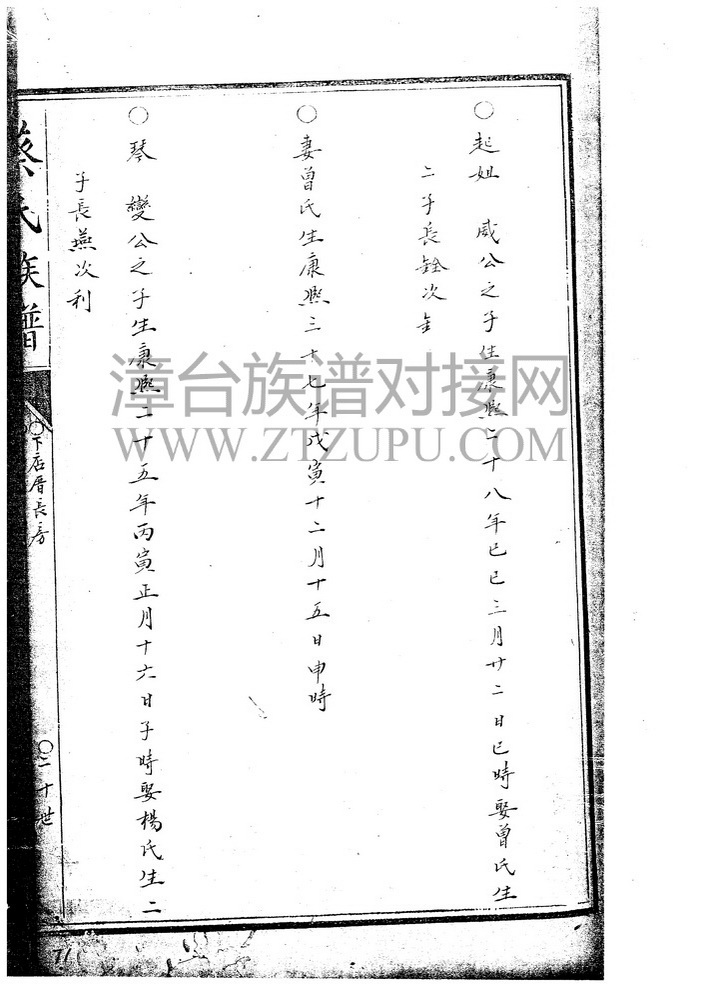 ○起姐　咸公之子生康熙二十八年己巳三月廿二日巳時娶曾氏生
二子長銓次金
○妻曾氏生康熙三十七年戊寅十二月十五日申時
○琴　變公之子生康熙二十五年丙寅正月十六日子時娶楊氏生二
子長燕次利
蔡氏族譜
○下店厝長房
○二十世
71
漳台族谱对接网
WWW.ZTZUPU.COM